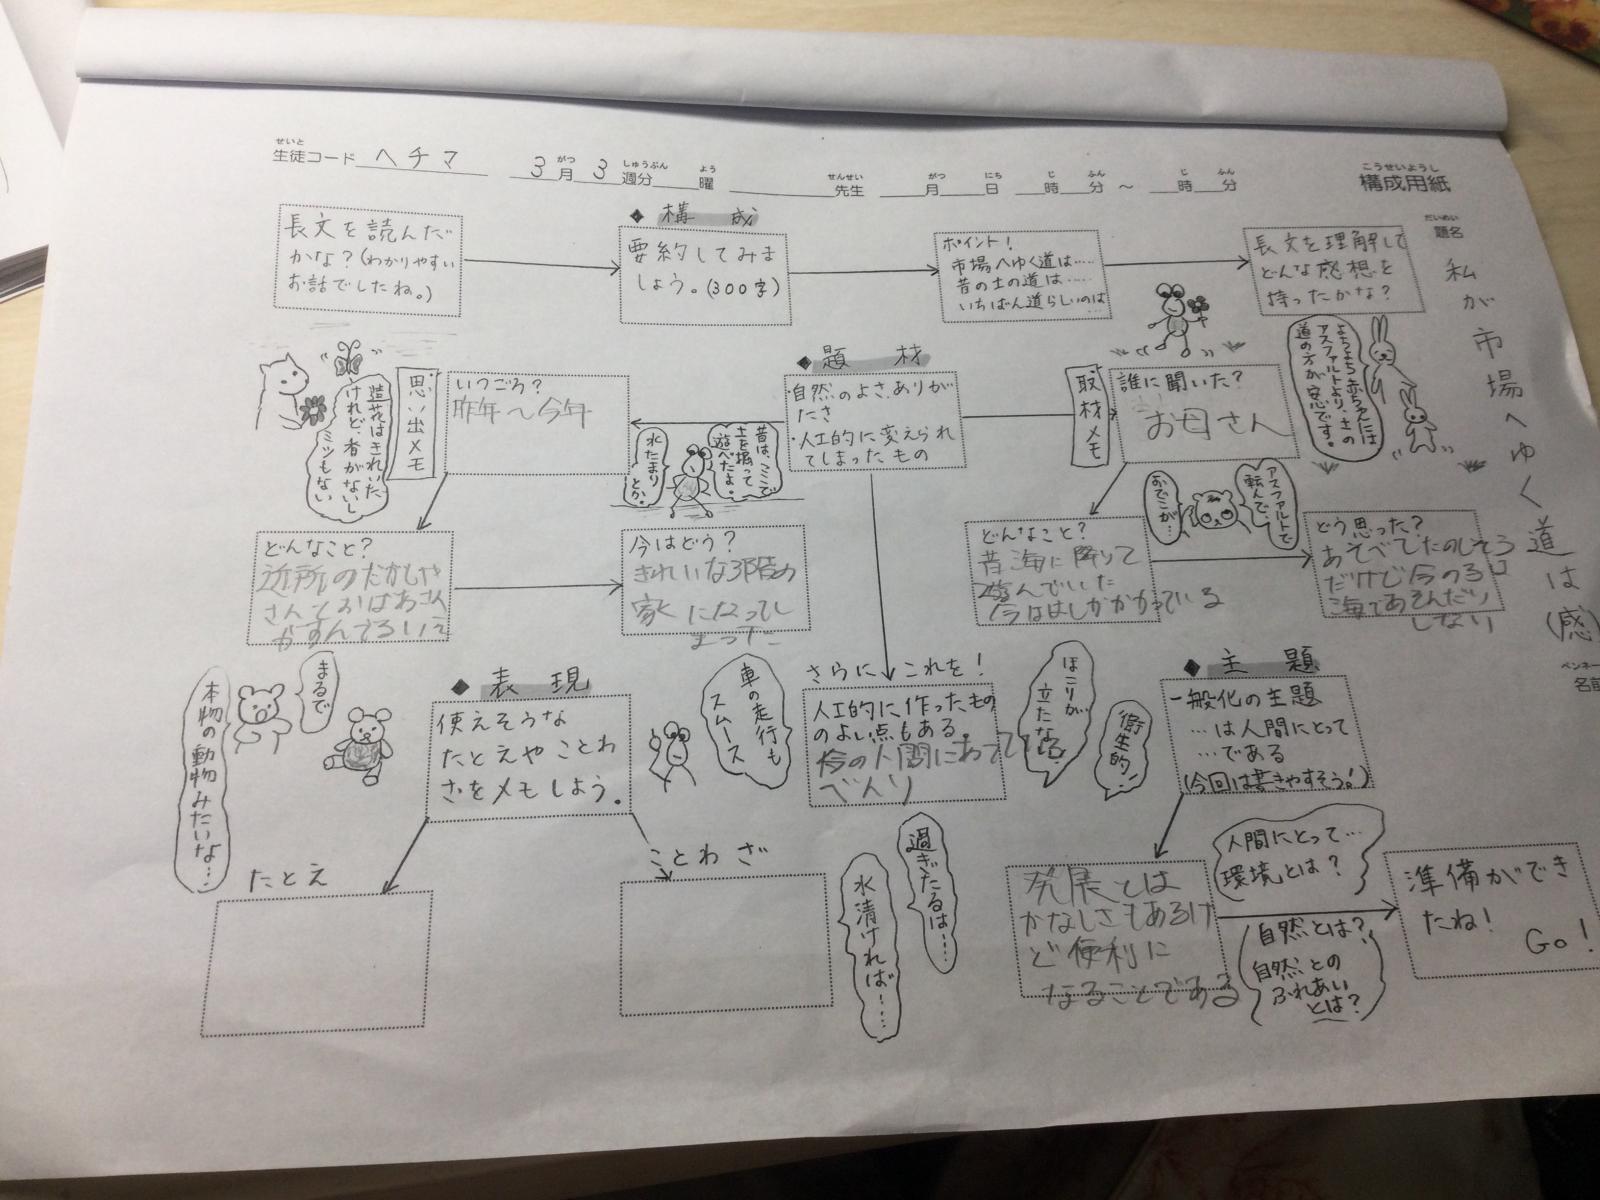 せいと
生徒コード ヘチマ 3月 3週分 曜 先生 月 日 時 分 〜 時 分
がつ しゅうぶん よう せんせい がつ にち じ ふん じ ふん
こうせいようし
構成用紙
だいめい
題名
私が市場へゆく道は(感)
ペンネー
名前
長文を読んだ
かな?(わかりやすい
お話でしたね。)
◆ 構成
要約してみま
しょう。(300字)
ポイント!
市場へゆく道は……
昔の土の道は……
いちばん道らしいのは…
長文を理解して
どんな感想を
持ったかな?
よちよち赤ちゃんには
アスファルトより、土の
道の方が安心です。
◆ 題材
・自然のよさ、ありが
たさ
・人工的に変えられ
てしまったもの
取材メモ
誰に聞いた?
お母さん
思い出メモ
いつごろ?
昨年〜今年
造花はきれいだ
けれど、香がないし
ミツもない
昔は、ここで
土を掘って
遊べたよ。
水たまり
とか。
どんなこと?
近所のだがしや
さんとおばあさん
がすんでるいえ
今はどう?
きれいな3階の
家になってし
まった
どんなこと?
昔海に降りて
遊んでいた
今ははしがかかっている
おでこが…
アスファルトで
転んで、
どう思った?
あそべてたのしそう
だけど今のるは
海であそんだり
しない
◆ 表現
使えそうな
たとえやことわ
ざをメモしよう。
まるで
本物の動物みたいな…
たとえ
ことわざ
車の走行も
スムーズ
さらにこれを!
人工的に作ったもの
のよい点もある。
今の人間にあってて
べんり
ほこりが
立たない。
衛生的!
過ぎたるは……
水清ければ……
◆ 主題
一般化の主題
…は人間にとって
…である
(今回は書きやすそう!)
発展とは
かなしさもあるけ
ど便利に
なることである
人間にとって…
環境とは?
自然とは?
自然との
ふれあい
とは?
準備ができ
たね!
Go!